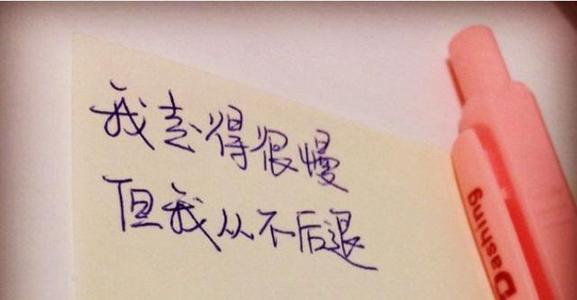 我走得很慢
但我从不后退
Dashing